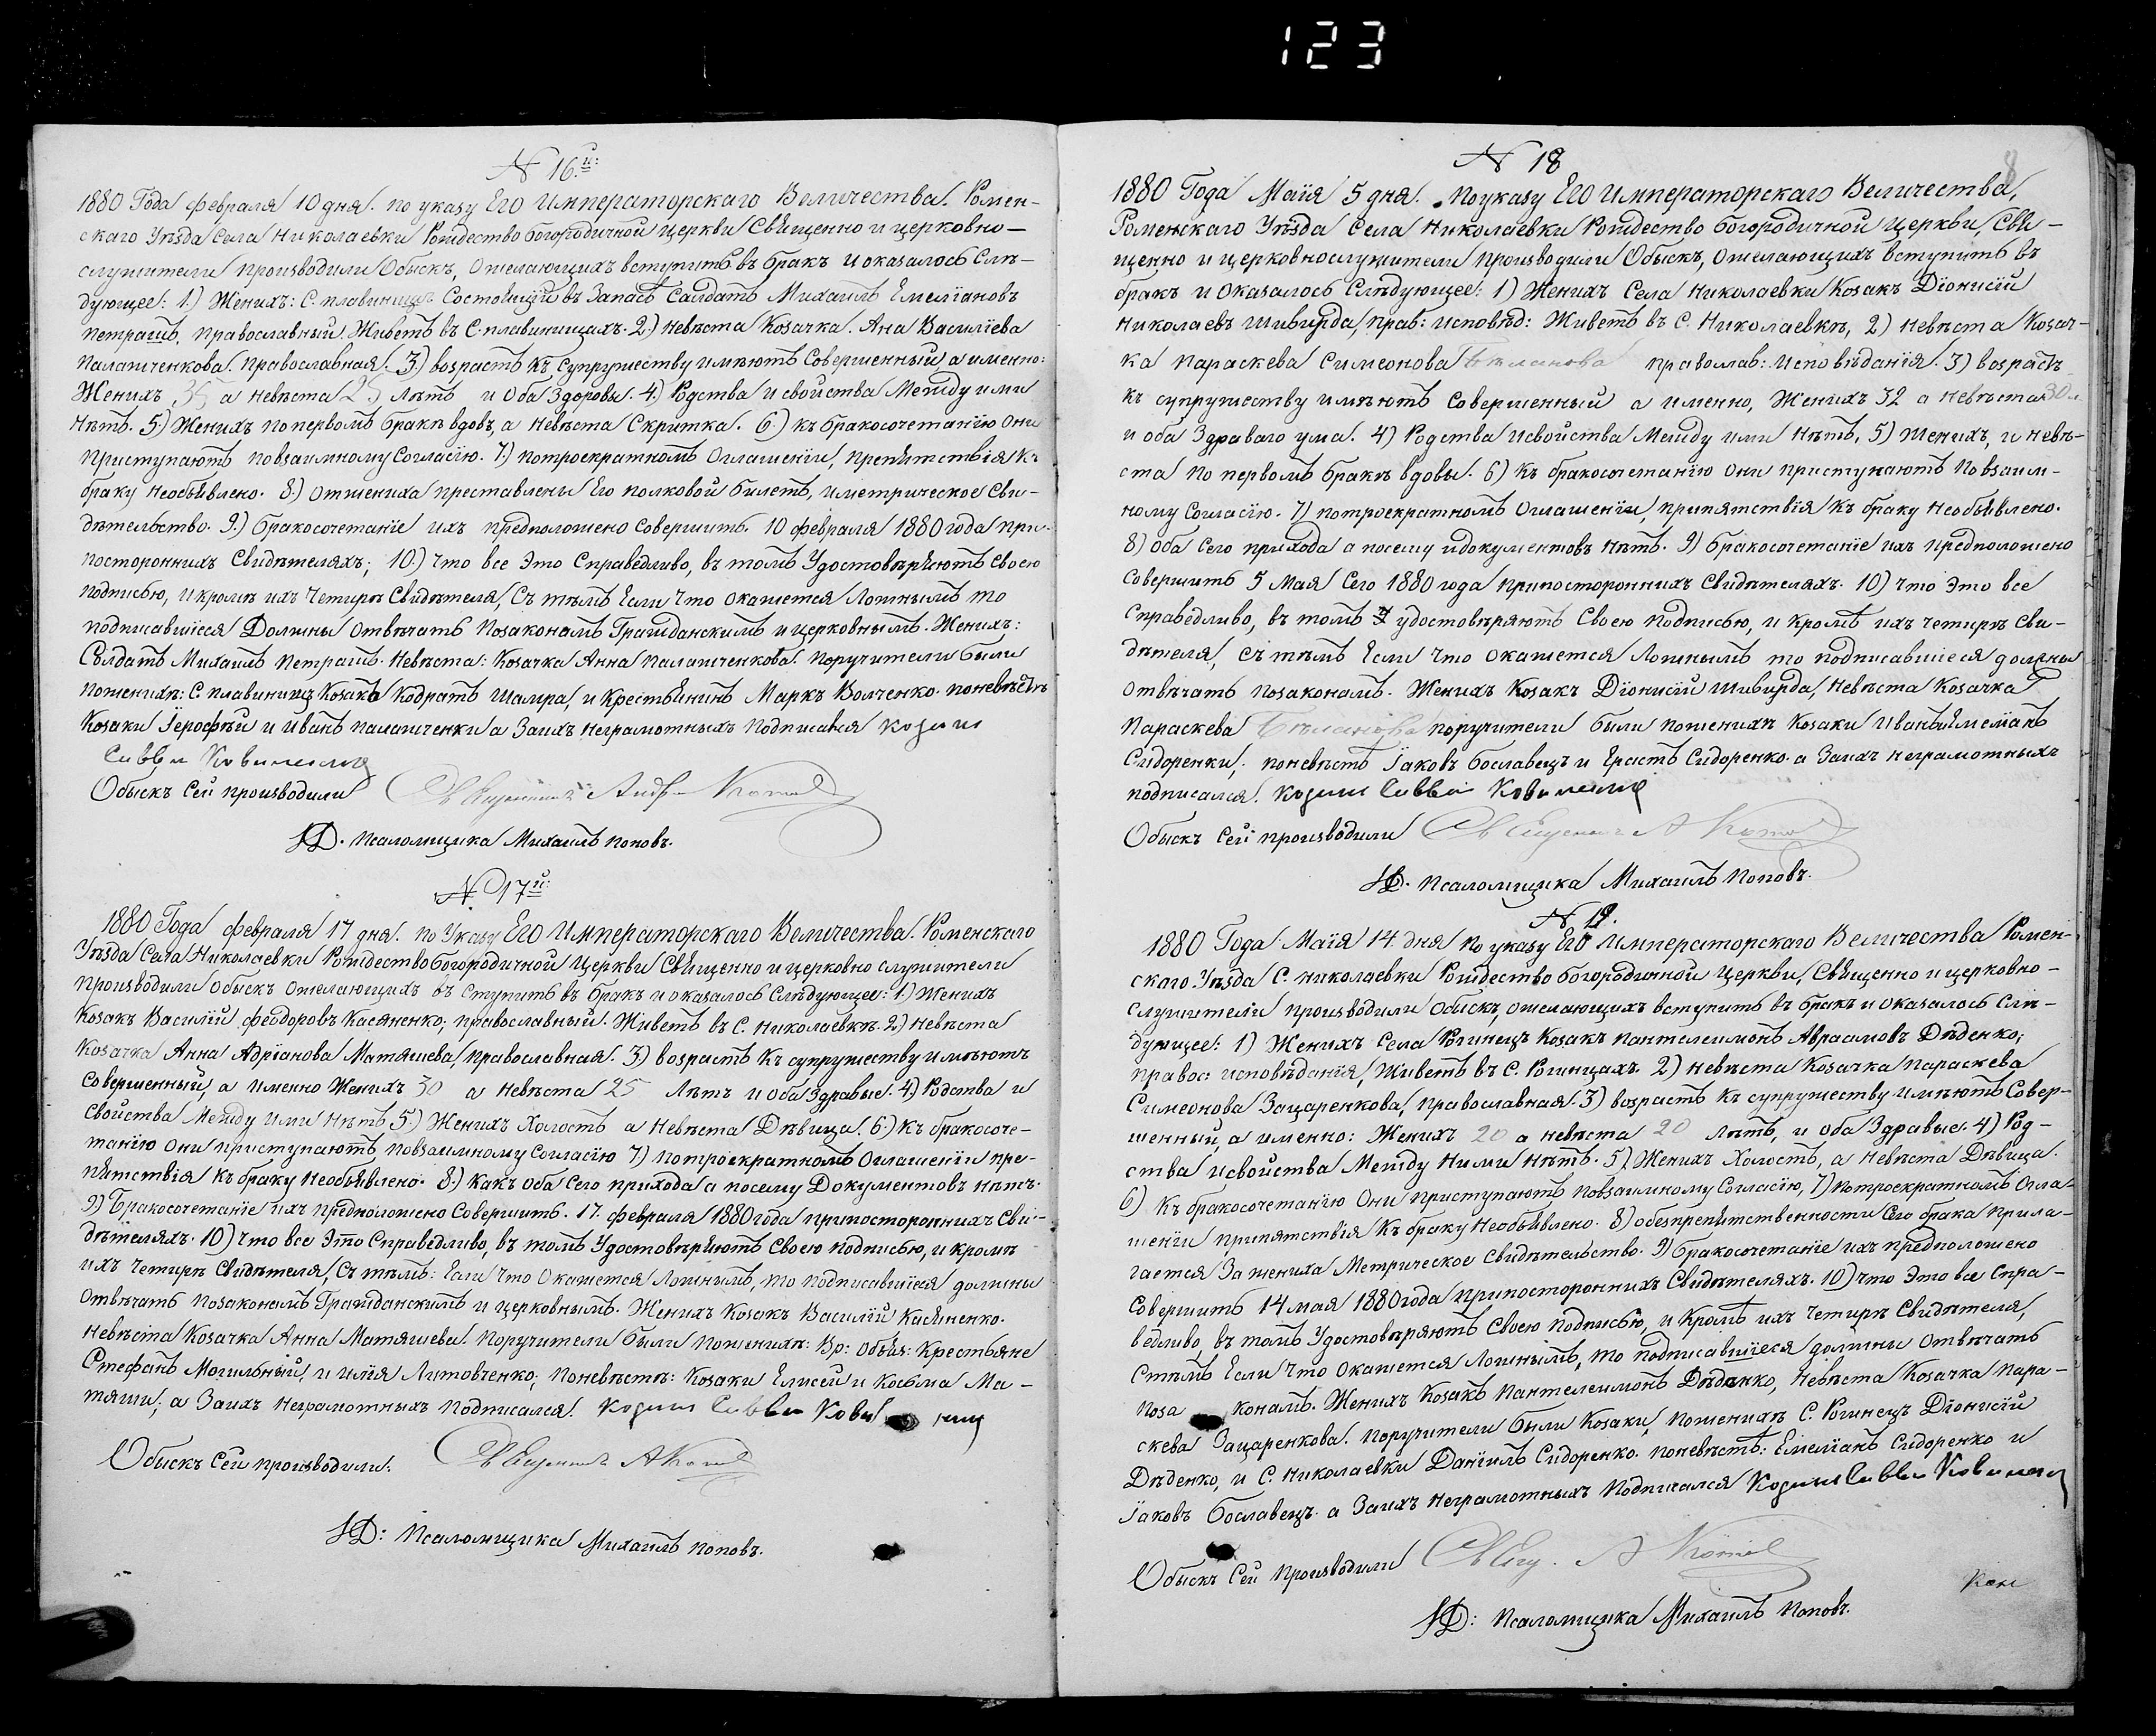 123
N 16.й:
1880 Года февраля 10 дня. по указу Его Императорскаго Величества. Ромен-
скаго Уѣзда Села Николаевки Рождество богородичной церкви Священно и церковно-
служители производили Обыскъ, Ожелающихъ вступить въ бракъ и оказалось Слѣ-
дующее: 1.) Женихъ: С. плавинищъ Состоящій въ Запасѣ Салдатъ Михаилъ Емеліановъ
петрашъ, православный. Живетъ въ С. плавинищахъ. 2.) невѣста Козачка. Ана Василіева
Палашченкова. православная. 3.) возрастъ къ Супружеству имѣютъ Совершенный а именно:
Женихъ 35 а невѣста 25 лѣтъ и Оба Здоровы. 4.) Родства и свойства Между ими
Нѣтъ. 5.) Женихъ по первомъ бракѣ вдовъ, а невѣста Скритка. 6.) къ бракосочетанію Они
приступаютъ повзаимному Согласію. 7.) потроекратномъ Оглашеніи, препятствія къ
браку необъявлено. 8.) отжениха преставлены Его полковой билетъ, и метрическое Сви-
дѣтельство. 9.) бракосочетаніе ихъ предположено Совершить. 10 февраля 1880 года при
постороннихъ Свидѣтеляхъ; 10.) что все Это Справедливо, въ томъ Удостовѣряютъ Своею
подписью, и кромѣ ихъ Четырѣ Свидѣтеля, Съ тѣмъ Если что окажется Ложнымъ то
подписавшіеся Должны отвѣчать позаконамъ Гражданскимъ и церковнымъ. Женихъ:
Салдатъ Михаилъ Петрашъ. Невѣста: Козачка Анна палашченкова. поручители были
пожениху: С. плавинищъ Козакъ Кодратъ Шамра, и Крестьянинъ Маркъ Волченко. поневѣстѣ
Козаки Іерофѣй и Иванъ палашченки а Заихъ неграмотныхъ подписався Козакъ
Савва
Обыскъ Сей производили Священникъ
И.Д. псаломщика Михаилъ поповъ.
N 17й:
1880 Года февраля 17 дня. по Указу Его Императорскаго Величества. Роменскаго
Уѣзда Села Николаевки Рождество богородичной Церкви Священно и церковно служители
производили обыскъ ожелающихъ въ ступить въ бракъ и оказалось Слѣдующее: 1.) Женихъ
Козакъ Василій феодоровъ Касяненко, православный. Живетъ въ С. Николаевкѣ. 2.) Невѣста
Козачка Анна Адріанова Матяшева, православная. 3.) возрастъ къ супружеству имѣютъ
Совершенный, а именно Женихъ 30 а невѣста 25 лѣтъ и оба Здравые. 4.) Родства и
Свойства Между ими Нѣтъ 5.) Женихъ Холостъ а невѣста Дѣвица. 6.) къ бракосоче-
танію Они приступаютъ, повзаимному Согласію 7.) потроекратномъ Оглашеніи пре-
пятствія къ браку необъявлено. 8.) какъ оба сего прихода а посему Документовъ нѣтъ.
9.) Бракосочетаніе ихъ предположено Совершить. 17. февраля 1880 года припостороннихъ Сви-
дѣтеляхъ. 10) что все Это Справедливо, въ томъ Удостовѣряютъ Своею подписью, и кромѣ
ихъ Четырѣ Свидѣтеля, Съ тѣмъ: Если что Окажется ложнымъ, то подписавшіеся должны
отвѣчать позаконамъ Гражданскимъ и церковнымъ. Женихъ Козакъ Василій Касяненко.
Невѣста Козачка Анна Матяшева. поручители были пожениху: Вр: обяз: Крестьяне
Стефанъ Могильный, и илія Литовченко; поневѣстѣ: Козаки Елисей и Косьма Ма-
тяши; а Заихъ неграмотныхъ подписался. Козакъ Савва
Обыскъ сей производили. Священникъ
И.Д: псаломщика Михаилъ поповъ.
8
N 18
1880 Года Маія 5 дня. Поуказу Его Императорскаго Величества,
Роменскаго Уѣзда Села Николаевки Рождество богородичной Церкви, Свя-
щенно и церковнослужители производили Обыскъ, Ожелающихъ вступить въ
бракъ и Оказалось Слѣдующее: 1) Женихъ Села Николаевки Козакъ Діонисій
Николаевъ Шивирда, прав: исповѣд: Живетъ въ С. Николаевкѣ, 2) невѣста Козач-
ка параскева Симеонова православ: исповѣданія. 3) возрастъ
къ супружеству имѣютъ Совершенный а именно, Женихъ 32 а невѣста 30 л.
и оба Здраваго ума. 4) Родства и свойства Между ими нѣтъ. 5) женихъ, и невѣ-
ста по первомъ бракѣ вдовы. 6) къ бракосочетанію они приступаютъ повзаим-
ному согласію. 7) потроекратномъ оглашеніи, припятствія къ браку необъявлено.
8) оба сего прихода а посему и документовъ нѣтъ. 9) бракосочетаніе ихъ предположено
Совершить 5 Мая Сего 1880 года припостороннихъ Свидѣтеляхъ. 10) что Это все
Справедливо, въ томъ удостовѣряютъ Своею подписью, и кромѣ ихъ четырѣ Сви-
дѣтеля, Съ тѣмъ Если что окажется Ложнымъ то подписавшіеся должны
отвѣчать позаконамъ. Женихъ Козакъ Діонисій Шивирда, Невѣста Козачка
параскева поручители были пожениху Козаки Иванъ и Емеліанъ
Сидоренки; поневѣстѣ Іаковъ бославецъ и Ерастъ Сидоренко. а Заихъ неграмотныхъ
подписался. Козакъ Савва
Обыскъ Сей производили Священникъ
И.Д. псаломщика Михаилъ поповъ.
N 19.
1880 Года Маія 14. дня по указу Его Императорскаго Величества Ромен-
скаго Уѣзда С. Николаевки Рождество богородичной Церкви, Священно и церковно-
служители производили Обыскъ, ожелающихъ вступить въ бракъ и оказалось Слѣ-
дующее: 1) Женихъ Села Рогинецъ Козакъ пантелеимонъ Авраамовъ Дѣденко;
правос: исповѣданія, Живетъ въ С. Рогинцахъ. 2) невѣста Козачка параскева
Симеонова Зацаренкова, православная. 3) возрастъ къ супружеству имѣютъ Совер-
шенный, а именно: Женихъ 20 а невѣста 20 лѣтъ, и оба Здравые. 4) Род-
ства и свойства Между Ними нѣтъ. 5) Женихъ Холостъ, а невѣста Дѣвица.
6) къ бракосочетанію Они приступаютъ повзаимному Согласію, 7) потроекратномъ Огла-
шеніи припятствія къ браку необъявлено. 8) обезпрепятственности Сего брака прила-
гается За жениха Метрическое Свидѣтельство. 9) бракосочетаніе ихъ предположено
Совершить 14 мая 1880 года припостороннихъ Свидѣтеляхъ. 10) что Это все Спра-
ведливо, въ томъ Удостовѣряютъ Своею подписью, и кромѣ ихъ четырѣ Свидѣтеля,
Стѣмъ Если что окажется Ложнымъ, то подписавшіеся должны отвѣчать
поза конамъ. Женихъ Козакъ пантелеимонъ Дѣденко, невѣста Козачка пара-
скева Зацаренкова. поручители были Козаки, пожениху С. Рогинецъ Діонисій
Дѣденко, и С. Николаевки Даніилъ Сидоренко. поневѣстѣ: Емеліанъ Сидоренко и
Іаковъ бославецъ. а Заихъ неграмотныхъ подписался Козакъ Савва
Обыскъ Сей производили
И.Д: псаломщика Михаилъ поповъ.